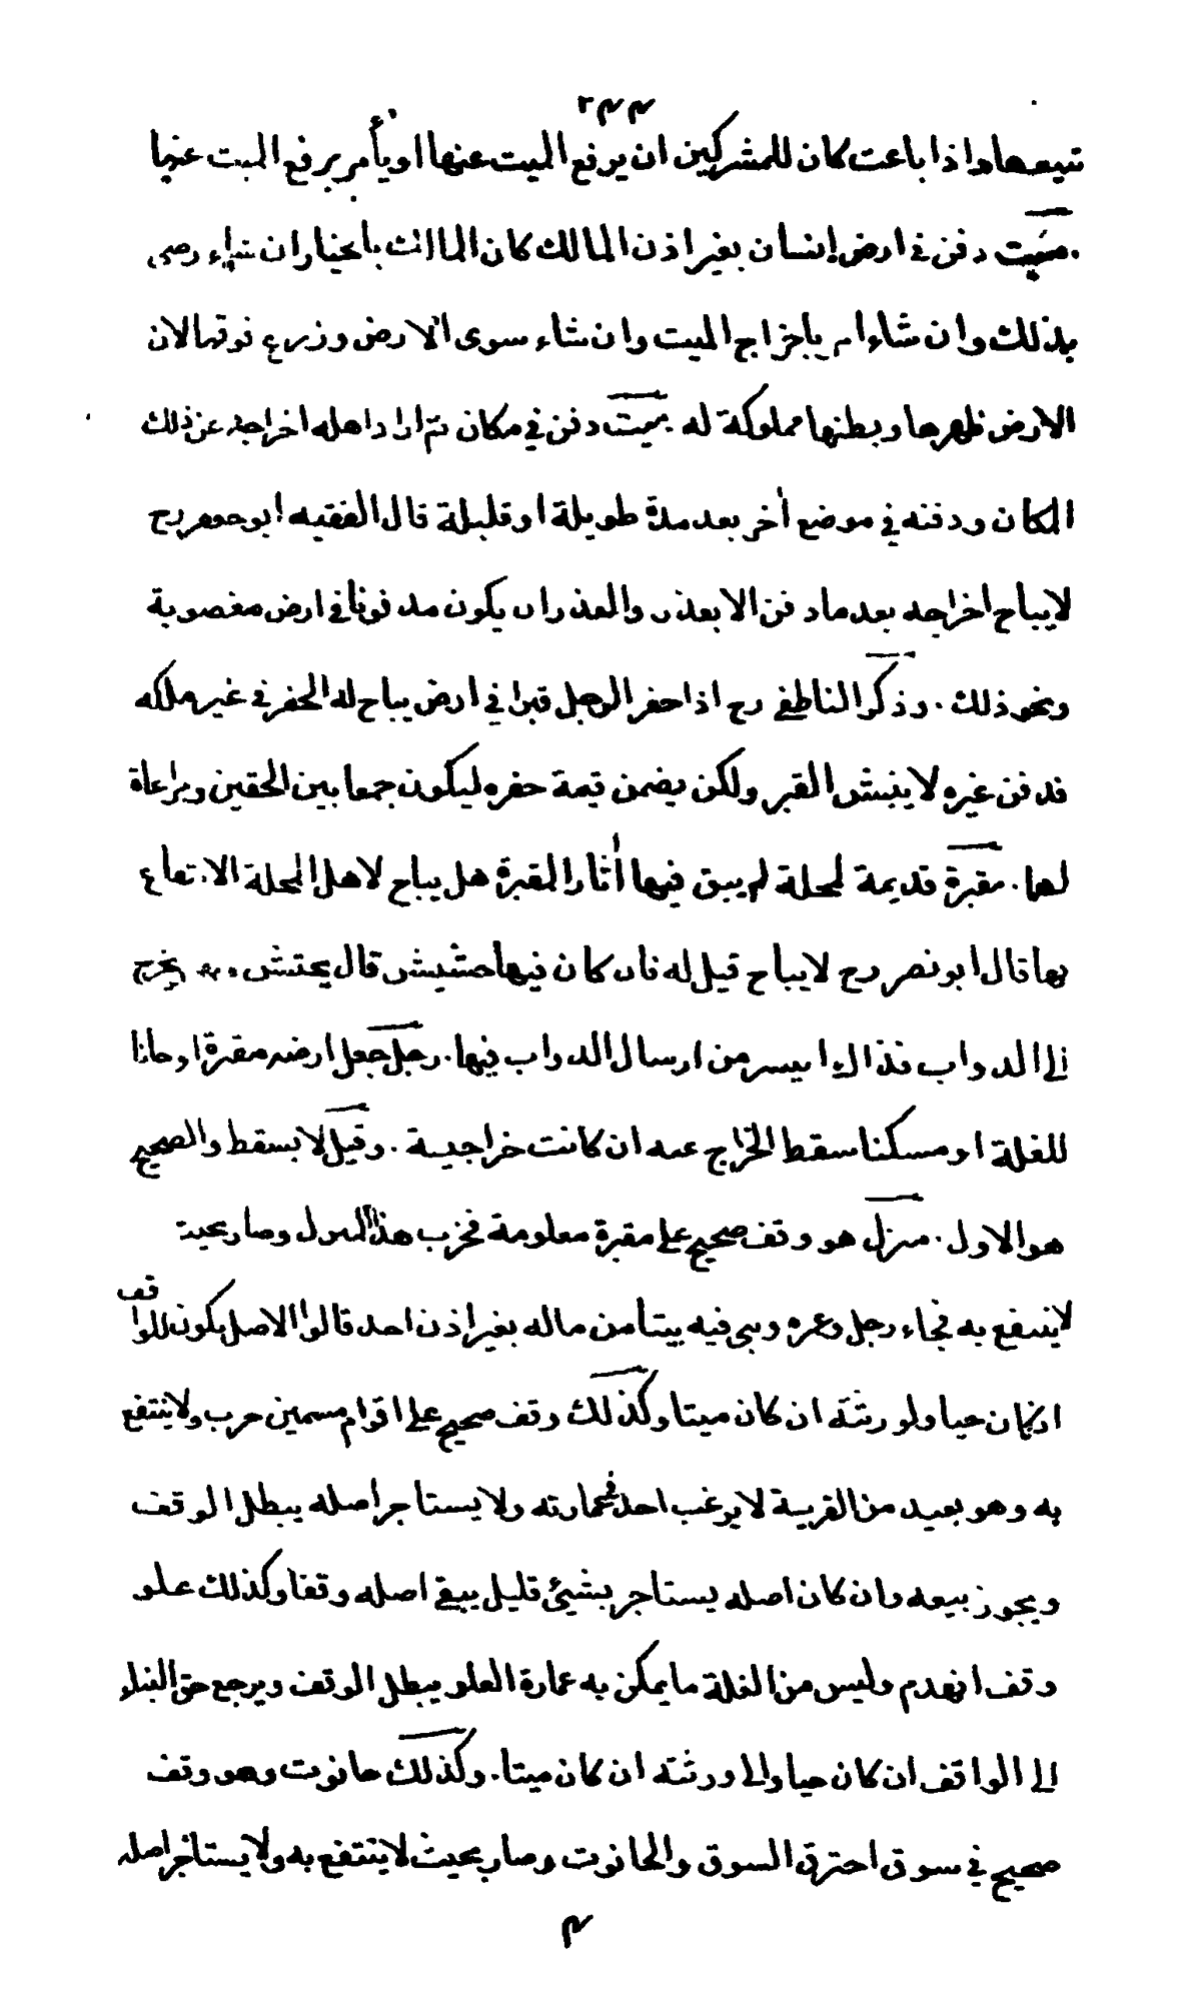 ٢٤٤
تبيعها واذا باعت كان للمشركين ان يرفع الميت عنها او يأمر برفع الميت عنها
. ميت دفن في ارض إنسان بغير اذن المالك كان المالك بالخيار ان شاء رضى
بذلك وان شاء امر باخراج الميت وان شاء سوى الارض وزرع فوقها لان
الارض ظهرها وبطنها مملوكة له . ميت دفن في مكان ثم اراد اهله اخراجه عن ذلك
المكان ودفنه في موضع أخر بعد مدة طويلة او قليلة قال الفقيه ابو جعفر رح
لايباح اخراجه بعد ما دفن الا بعذر والعذر ان يكون مدفونا في ارض مغصوبة
ونحو ذلك . وذكر الناطفي رح اذا حفر الرجل قبرا في ارض يباح له الحفر في غير ملكه
فدفن غيره لا ينبش القبر ولكن يضمن قيمة حفره ليكون جمعا بين الحقين ومراعاة
لهما . مقبرة قديمة لمحلة لم يبق فيها أثار المقبرة هل يباح لاهل المحلة الانتفاع
بها قال ابو نصر رح لايباح قيل له فان كان فيها حشيش قال يحتش منه ويخرج
الى الدواب فذالك ايسر من ارسال الدواب فيها . رجل جعل ارضه مقبرة او خانا
للغلة او مسكنا سقط الخراج عنه ان كانت خراجية . وقيل لا يسقط والصحيح
هو الاول . منزل هو وقف صحيح على مقبرة معلومة فخرب هذا المنزل وصار بحيث
لاينتفع به فجاء رجل وعمره وبنى فيه بيتا من ماله بغير اذن احد قالوا الاصل يكون للواقف
ان كان حيا ولورثته ان كان ميتا وكذلك وقف صحيح على اقوام مسمين خرب ولا ينتفع
به وهو بعيد من القرية لا يرغب احد في عمارته ولا يستاجر اصله يبطل الوقف
ويجوز بيعه وان كان اصله يستاجر بشيئ قليل يبقى اصله وقفا وكذلك علو
وقف انهدم وليس من الغلة ما يمكن به عمارة العلو يبطل الوقف ويرجع حق البناء
الى الواقف ان كان حيا والى ورثته ان كان ميتا . وكذلك حانوت وهو وقف
صحيح في سوق احترق السوق والحانوت وصار بحيث لاينتفع به ولا يستاجر اصله